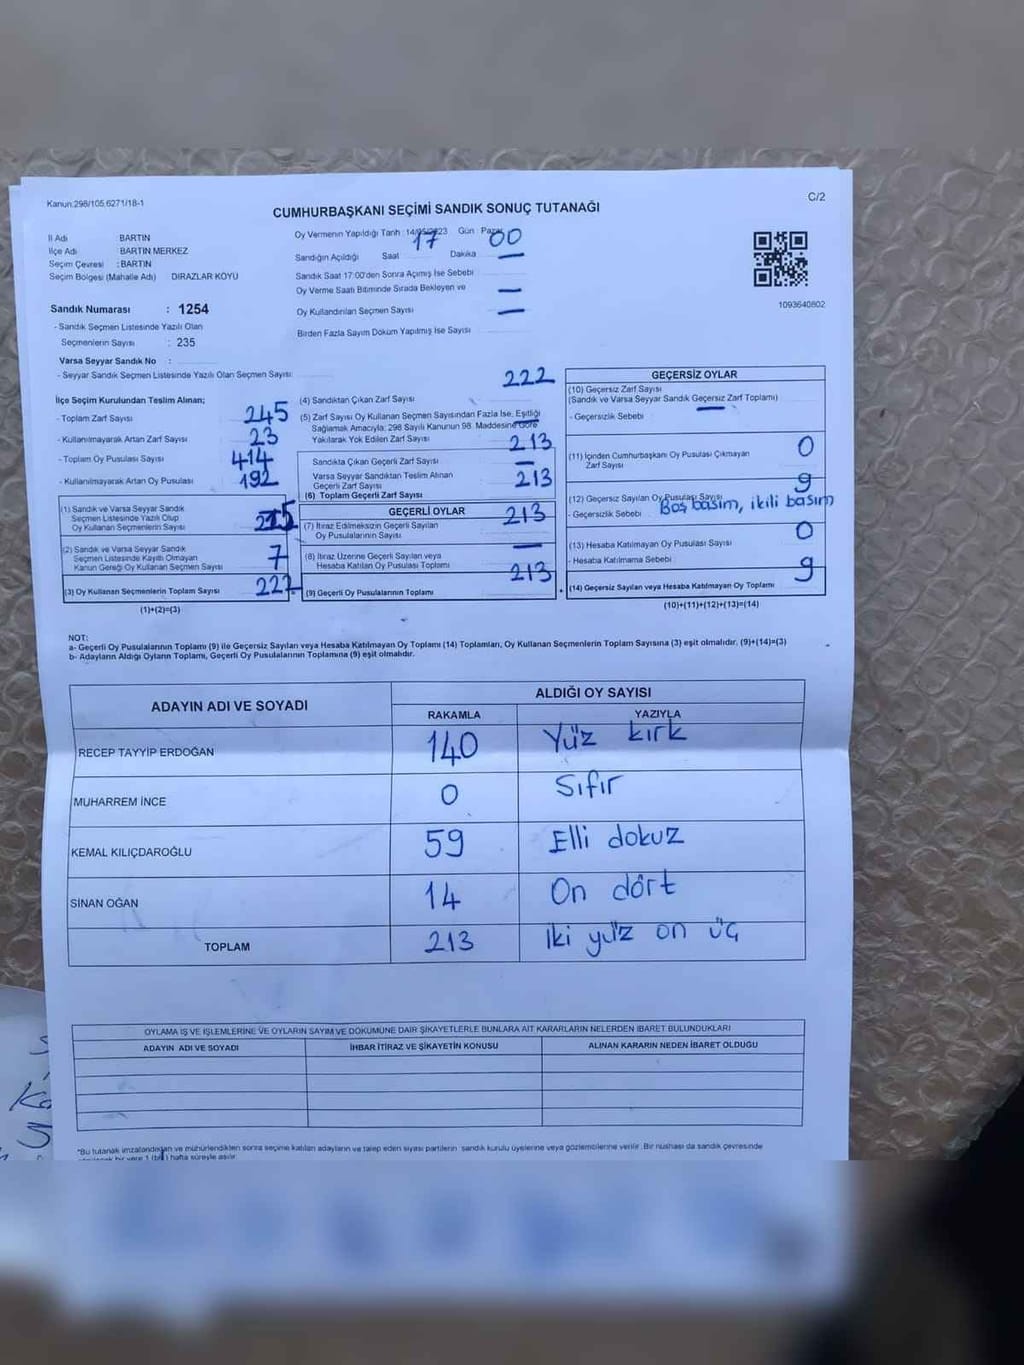 Kanun.298/105,6271/18-1
C/2
CUMHURBAŞKANI SEÇİMİ SANDIK SONUÇ TUTANAĞI
İl Adı BARTIN
İlçe Adı : BARTIN MERKEZ
Seçim Çevresi : BARTIN
Seçim Bölgesi (Mahalle Adı) DIRAZLAR KÖYÜ
Sandık Numarası : 1254
- Sandık Seçmen Listesinde Yazılı Olan
Seçmenlerin Sayısı : 235
Varsa Seyyar Sandık No :
- Seyyar Sandık Seçmen Listesinde Yazılı Olan Seçmen Sayısı:
Oy Vermenin Yapıldığı Tarih : 14/05/2023 Gün : Pazar
Sandığın Açıldığı Saat 17 Dakika 00
Sandık Saat 17:00'den Sonra Açımış İse Sebebi
Oy Verme Saati Bitiminde Sırada Bekleyen ve
Oy Kullandırılan Seçmen Sayısı
Birden Fazla Sayım Döküm Yapılmış İse Sayısı
1093640802
İlçe Seçim Kurulundan Teslim Alınan;
- Toplam Zarf Sayısı 245
- Kullanılmayarak Artan Zarf Sayısı 23
- Toplam Oy Pusulası Sayısı 414
- Kullanılmayarak Artan Oy Pusulası 192
(1) Sandık ve Varsa Seyyar Sandık
Seçmen Listesinde Yazılı Olup
Oy Kullanan Seçmenlerin Sayısı
(2) Sandık ve Varsa Seyyar Sandık
Seçmen Listesinde Kayıtlı Olmayan
Kanun Gereği Oy Kullanan Seçmen Sayısı 7
(3) Oy Kullanan Seçmenlerin Toplam Sayısı 222
(1)+(2)=(3)
(4) Sandıktan Çıkan Zarf Sayısı 222
(5) Zarf Sayısı Oy Kullanan Seçmen Sayısından Fazla İse, Eşitliği
Sağlamak Amacıyla; 298 Sayılı Kanunun 98. Maddesine Göre
Yakılarak Yok Edilen Zarf Sayısı
Sandıkta Çıkan Geçerli Zarf Sayısı 213
Varsa Seyyar Sandıktan Teslim Alınan
Geçerli Zarf Sayısı
(6) Toplam Geçerli Zarf Sayısı 213
GEÇERLİ OYLAR
(7) İtiraz Edilmeksizin Geçerli Sayılan
Oy Pusulalarının Sayısı 213
(8) İtiraz Üzerine Geçerli Sayılan veya
Hesaba Katılan Oy Pusulası Toplamı
(9) Geçerli Oy Pusulalarının Toplamı 213
GEÇERSİZ OYLAR
(10) Geçersiz Zarf Sayısı
(Sandık ve Varsa Seyyar Sandık Geçersiz Zarf Toplamı)
- Geçersizlik Sebebi
(11) İçinden Cumhurbaşkanı Oy Pusulası Çıkmayan
Zarf Sayısı 0
(12) Geçersiz Sayılan Oy Pusulası Sayısı 9
- Geçersizlik Sebebi Boş basım, ikili basım
(13) Hesaba Katılmayan Oy Pusulası Sayısı 0
- Hesaba Katılmama Sebebi
(14) Geçersiz Sayılan veya Hesaba Katılmayan Oy Toplamı 9
(10)+(11)+(12)+(13)=(14)
NOT:
a- Geçerli Oy Pusulalarının Toplamı (9) ile Geçersiz Sayılan veya Hesaba Katılmayan Oy Toplamı (14) Toplamları, Oy Kullanan Seçmenlerin Toplam Sayısına (3) eşit olmalıdır. (9)+(14)=(3)
b- Adayların Aldığı Oyların Toplamı, Geçerli Oy Pusulalarının Toplamına (9) eşit olmalıdır.
ADAYIN ADI VE SOYADI
ALDIĞI OY SAYISI
RAKAMLA YAZIYLA
RECEP TAYYİP ERDOĞAN 140 Yüz kırk
MUHARREM İNCE 0 Sıfır
KEMAL KILIÇDAROĞLU 59 Elli dokuz
SİNAN OĞAN 14 On dört
TOPLAM 213 İki yüz on üç
OYLAMA İŞ VE İŞLEMLERİNE VE OYLARIN SAYIM VE DÖKÜMÜNE DAİR ŞİKAYETLERLE BUNLARA AİT KARARLARIN NELERDEN İBARET BULUNDUKLARI
ADAYIN ADI VE SOYADI İHBAR İTİRAZ VE ŞİKAYETİN KONUSU ALINAN KARARIN NEDEN İBARET OLDUĞU
*Bu tutanak imzalandıktan ve mühürlendikten sonra seçime katılan adayların ve talep eden siyasi partilerin sandık kurulu üyelerine veya gözlemcilerine verilir. Bir nüshası da sandık çevresinde
bir yere 1 (bir) hafta süreyle asılır.